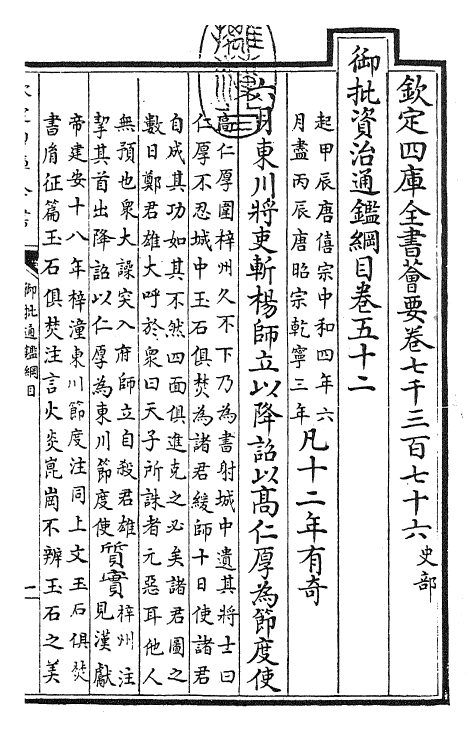 欽定四庫全書薈要卷七千三百七十六 史部
御批資治通鑑綱目卷五十二
起甲辰唐僖宗中和四年六
月盡丙辰唐昭宗乾寧三年
凡十二年有奇
六月東川將吏斬楊師立以降詔以高仁厚為節度使
高仁厚圍梓州久不下乃為書射城中遺其將士曰
仁厚不忍城中玉石俱焚為諸君緩師十日使諸君
自成其功如其不然四面俱進克之必矣諸君圖之
數日鄭君雄大呼於衆曰天子所誅者元惡耳他人
無預也衆大譟突入府師立自殺君雄
挈其首出降詔以仁厚為東川節度使
質實
梓州注
見漢獻
帝建安十八年梓潼東川節度注同上文玉石俱焚
書胤征篇玉石俱焚注言火炎崑岡不辨玉石之美
御批通鑑綱目
一